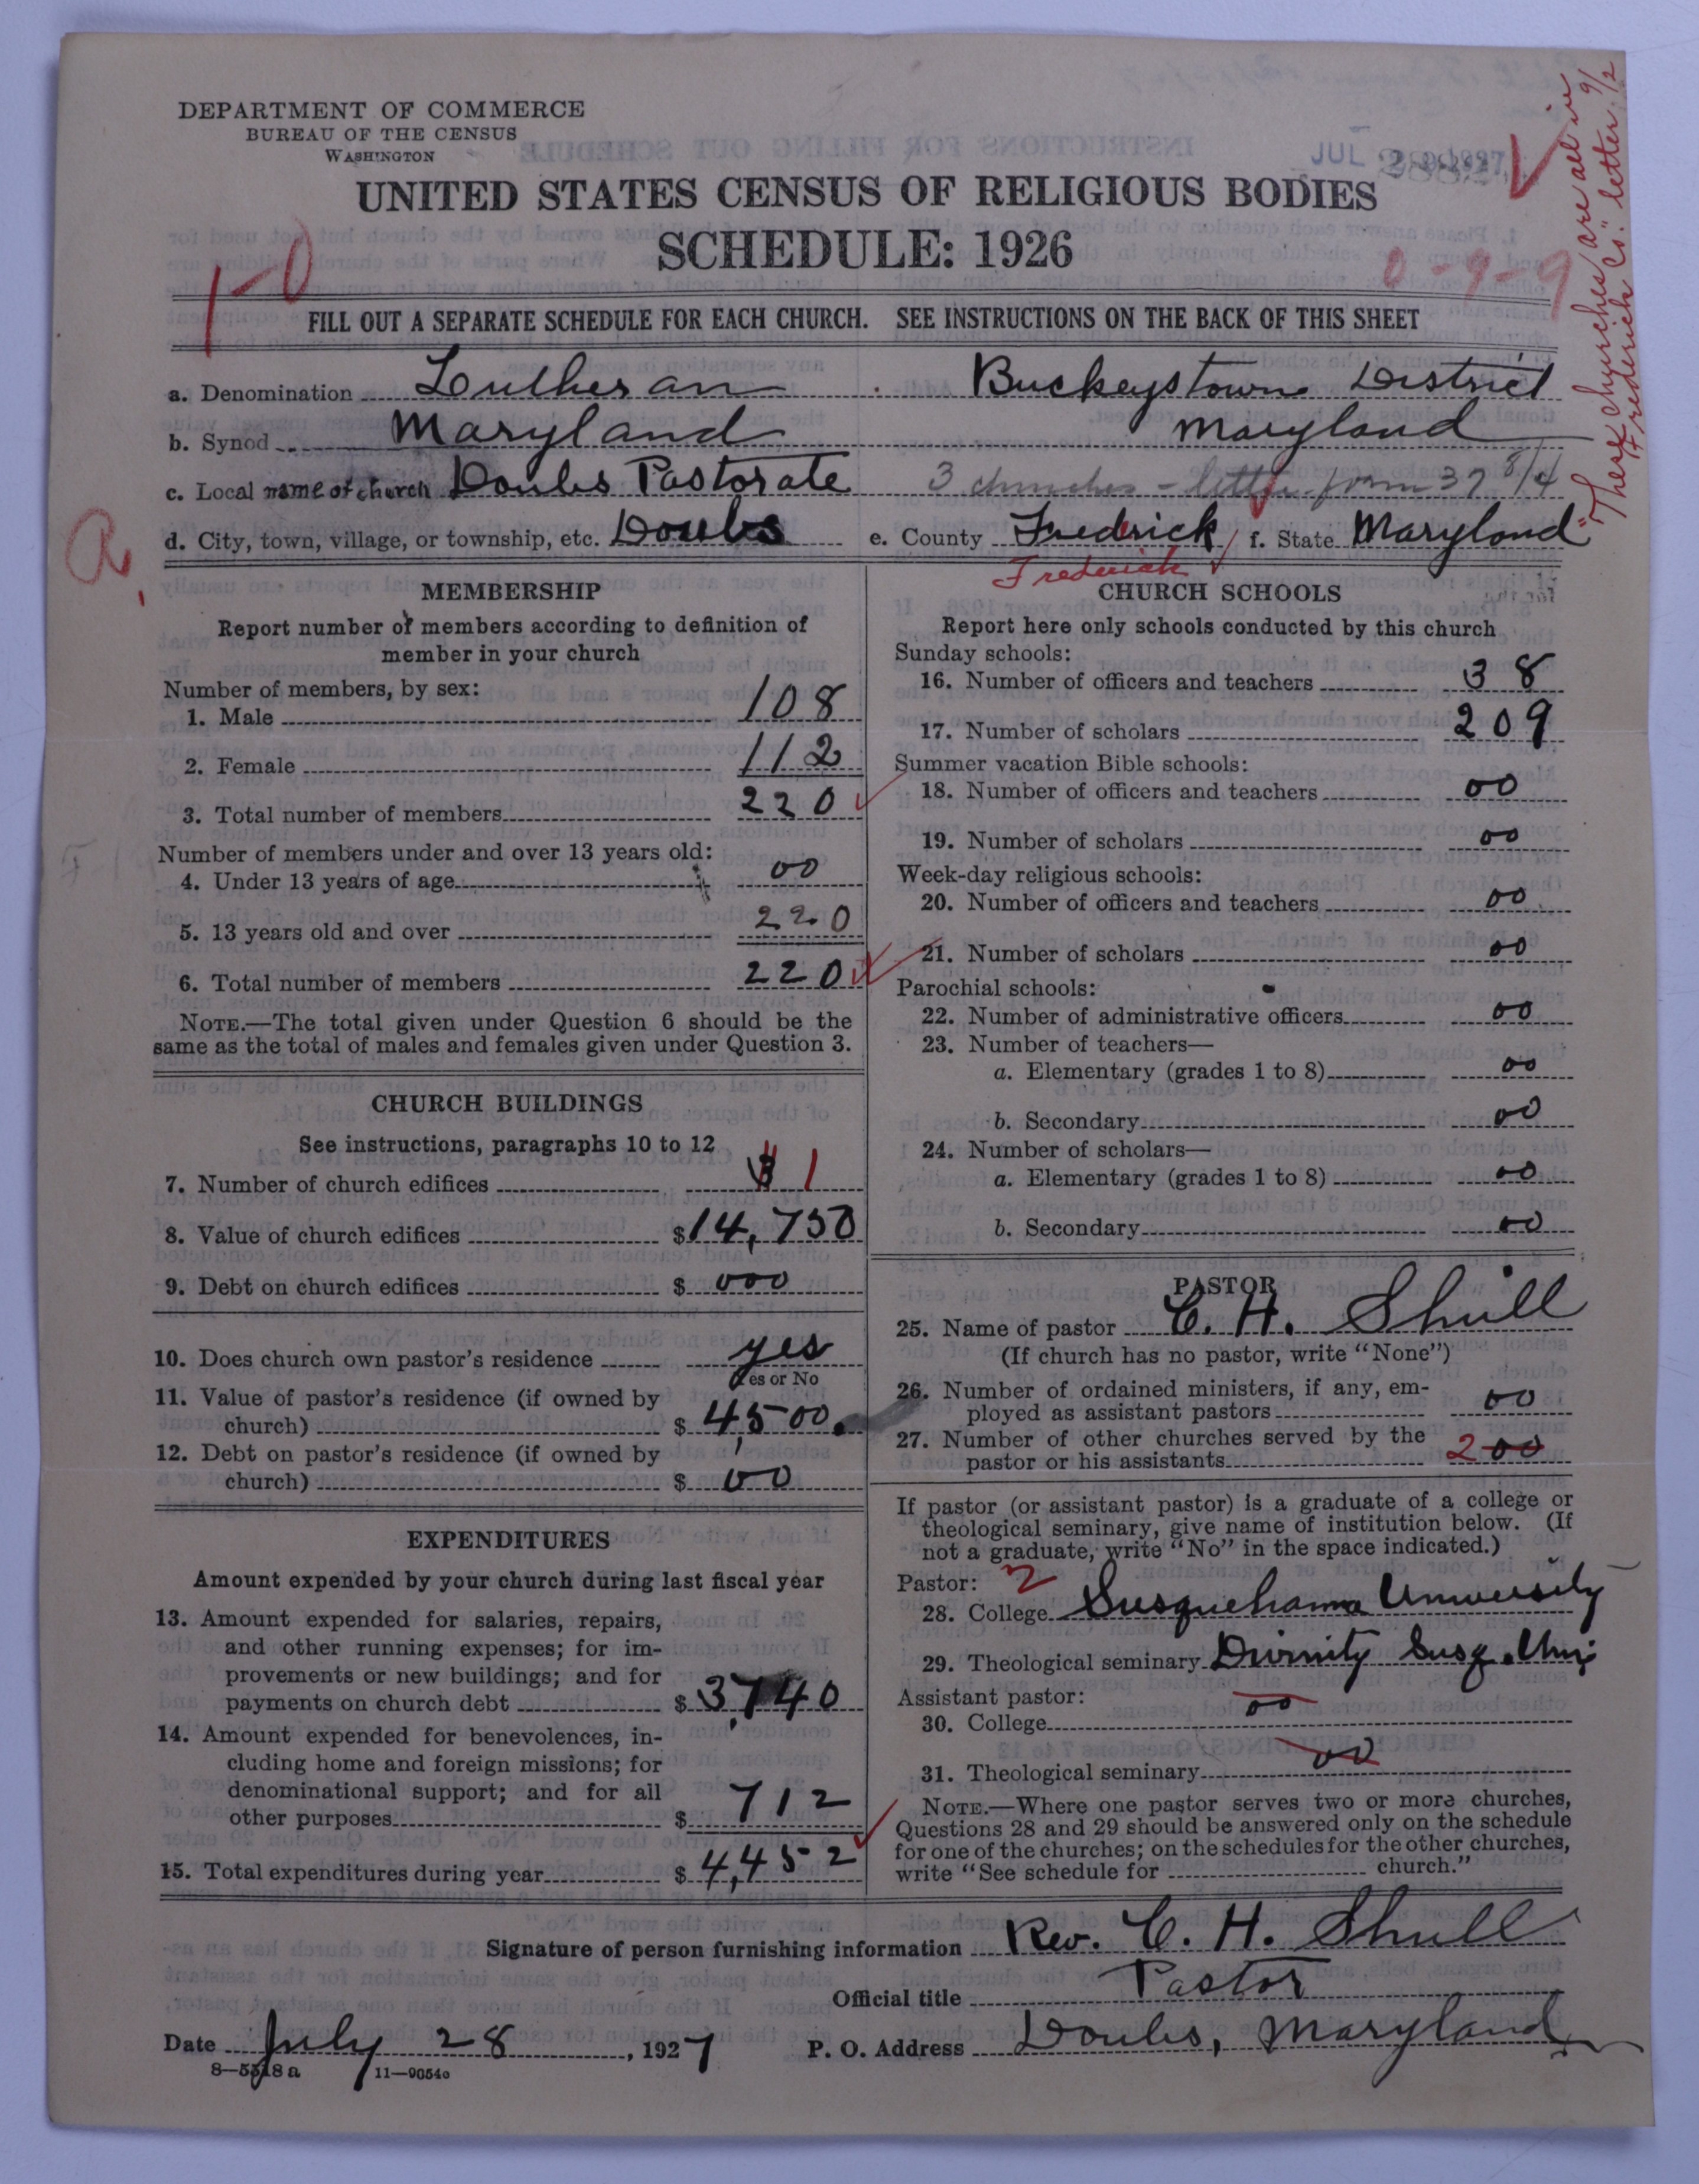 DEPARTMENT OF COMMERCE
BUREAU OF THE CENSUS
WASHINGTON
JUL 29 1927
UNITED STATES CENSUS OF RELIGIOUS BODIES
SCHEDULE: 1926
1-0
0-9-9
"These churches are all in
Frederick Co." letter 9/2
FILL OUT A SEPARATE SCHEDULE FOR EACH CHURCH. SEE INSTRUCTIONS ON THE BACK OF THIS SHEET
a. Denomination Lutheran Buckeystown District
b. Synod Maryland Maryland
c. Local name of church Doubs Pastorate 3 churches - letter form 37 8/4
d. City, town, village, or township, etc. Doubs e. County Fredrick f. State Maryland
Frederick
MEMBERSHIP
Report number of members according to definition of
member in your church
Number of members, by sex:
1. Male 108
2. Female 112
3. Total number of members 220
Number of members under and over 13 years old:
4. Under 13 years of age 00
5. 13 years old and over 220
6. Total number of members 220
NOTE.—The total given under Question 6 should be the
same as the total of males and females given under Question 3.
CHURCH BUILDINGS
See instructions, paragraphs 10 to 12
7. Number of church edifices 3 1
8. Value of church edifices $14,750
9. Debt on church edifices $ 000
10. Does church own pastor's residence yes
Yes or No
11. Value of pastor's residence (if owned by
church) $ 4,500.
12. Debt on pastor's residence (if owned by
church) $ 00
EXPENDITURES
Amount expended by your church during last fiscal year
13. Amount expended for salaries, repairs,
and other running expenses; for im-
provements or new buildings; and for
payments on church debt $ 3,740
14. Amount expended for benevolences, in-
cluding home and foreign missions; for
denominational support; and for all
other purposes $ 712
15. Total expenditures during year $ 4,452
CHURCH SCHOOLS
Report here only schools conducted by this church
Sunday schools:
16. Number of officers and teachers 38
17. Number of scholars 209
Summer vacation Bible schools:
18. Number of officers and teachers 00
19. Number of scholars 00
Week-day religious schools:
20. Number of officers and teachers 00
21. Number of scholars 00
Parochial schools:
22. Number of administrative officers 00
23. Number of teachers—
a. Elementary (grades 1 to 8) 00
b. Secondary 00
24. Number of scholars—
a. Elementary (grades 1 to 8) 00
b. Secondary 00
PASTOR
25. Name of pastor C. H. Shull
(If church has no pastor, write "None")
26. Number of ordained ministers, if any, em-
ployed as assistant pastors 00
27. Number of other churches served by the
pastor or his assistants 2 00
If pastor (or assistant pastor) is a graduate of a college or
theological seminary, give name of institution below. (If
not a graduate, write "No" in the space indicated.)
Pastor: 2
28. College Susquehanna University
29. Theological seminary Divinity Susq. Uni
Assistant pastor:
30. College 00
31. Theological seminary 00
NOTE.—Where one pastor serves two or more churches,
Questions 28 and 29 should be answered only on the schedule
for one of the churches; on the schedules for the other churches,
write "See schedule for church."
Signature of person furnishing information Rev. C. H. Shull
Official title Pastor
Date July 28, 1927 P. O. Address Doubs, Maryland
8—5518 a 11—9054o